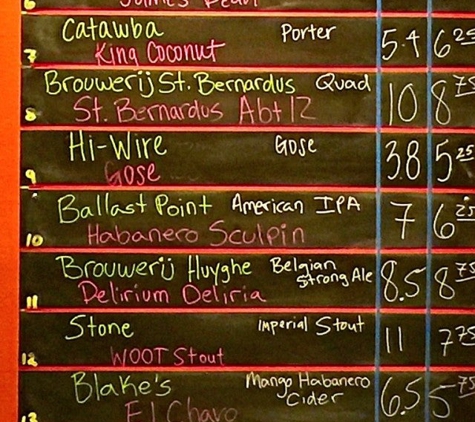 6 James Pearl
7 Catawba Porter 5.4 6 25
King Coconut
8 Brouwerij St. Bernardus Quad 10 8 75
St. Bernardus Abt 12
9 Hi-Wire Gose 3.8 5 25
Gose
10 Ballast Point American IPA 7 6 25
Habanero Sculpin
11 Brouwerij Huyghe Belgian Strong Ale 8.5 8 75
Delirium Deliria
12 Stone Imperial Stout 11 7 75
WOOT Stout
13 Blake's Mango Habanero Cider 6.5 5 75
El Chavo